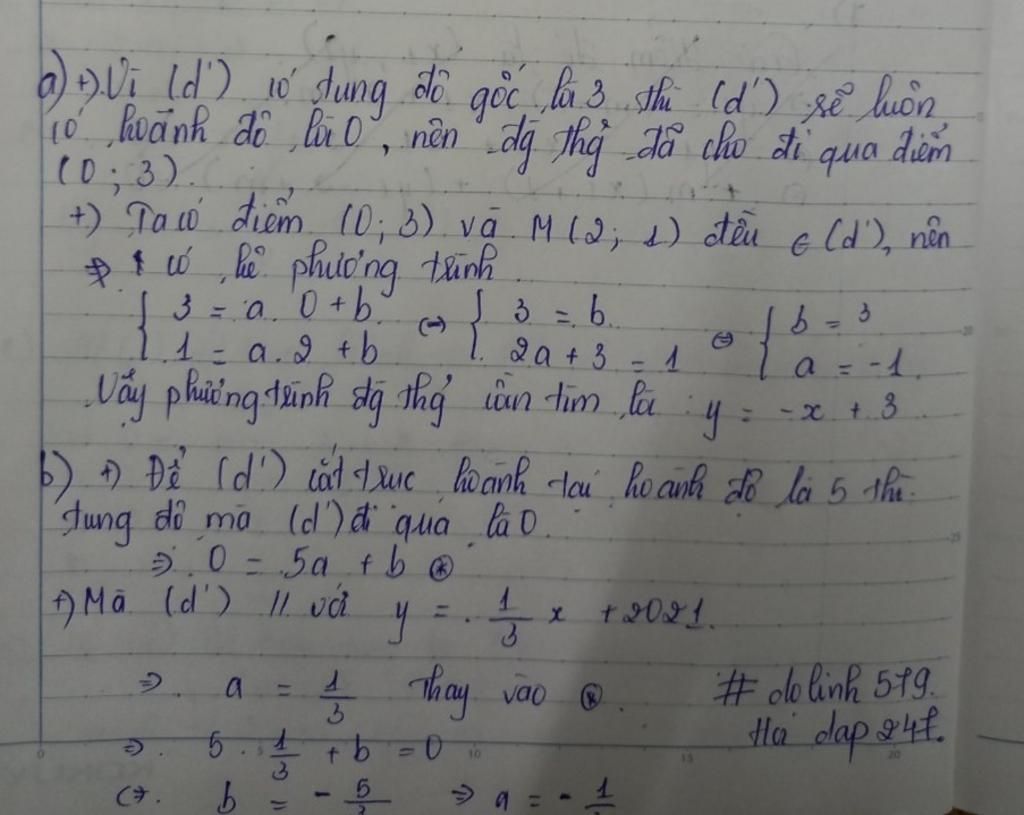 a) +) Vì (d') có tung độ gốc là 3 thì (d') sẽ luôn
có hoành độ là 0, nên đg thg đã cho đi qua điểm
(0; 3).
+) Ta có điểm (0; 3) và M(2; 1) đều ∈ (d'), nên
có hệ phương trình
{ 3 = a. 0 + b ⇔ { 3 = b. ⇔ { b = 3
{ 1 = a. 2 + b { 2a + 3 = 1 { a = -1.
Vậy phương trình đg thg cần tìm là : y = -x + 3
b) +) Để (d') cắt trục hoành tại hoành độ là 5 thì
tung độ mà (d') đi qua là 0.
⇒ 0 = 5a + b ⊛
+) Mà (d') // với y = 1/3 x + 2021.
⇒ a = 1/3 Thay vào ⊛.
# dolinh 579.
Hoi dap 247.
⇒ 5 . 1/3 + b = 0
0 5 10 15 20
⇔ b = - 5/3 ⇒ a = - 1